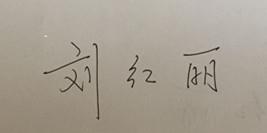 刘红丽